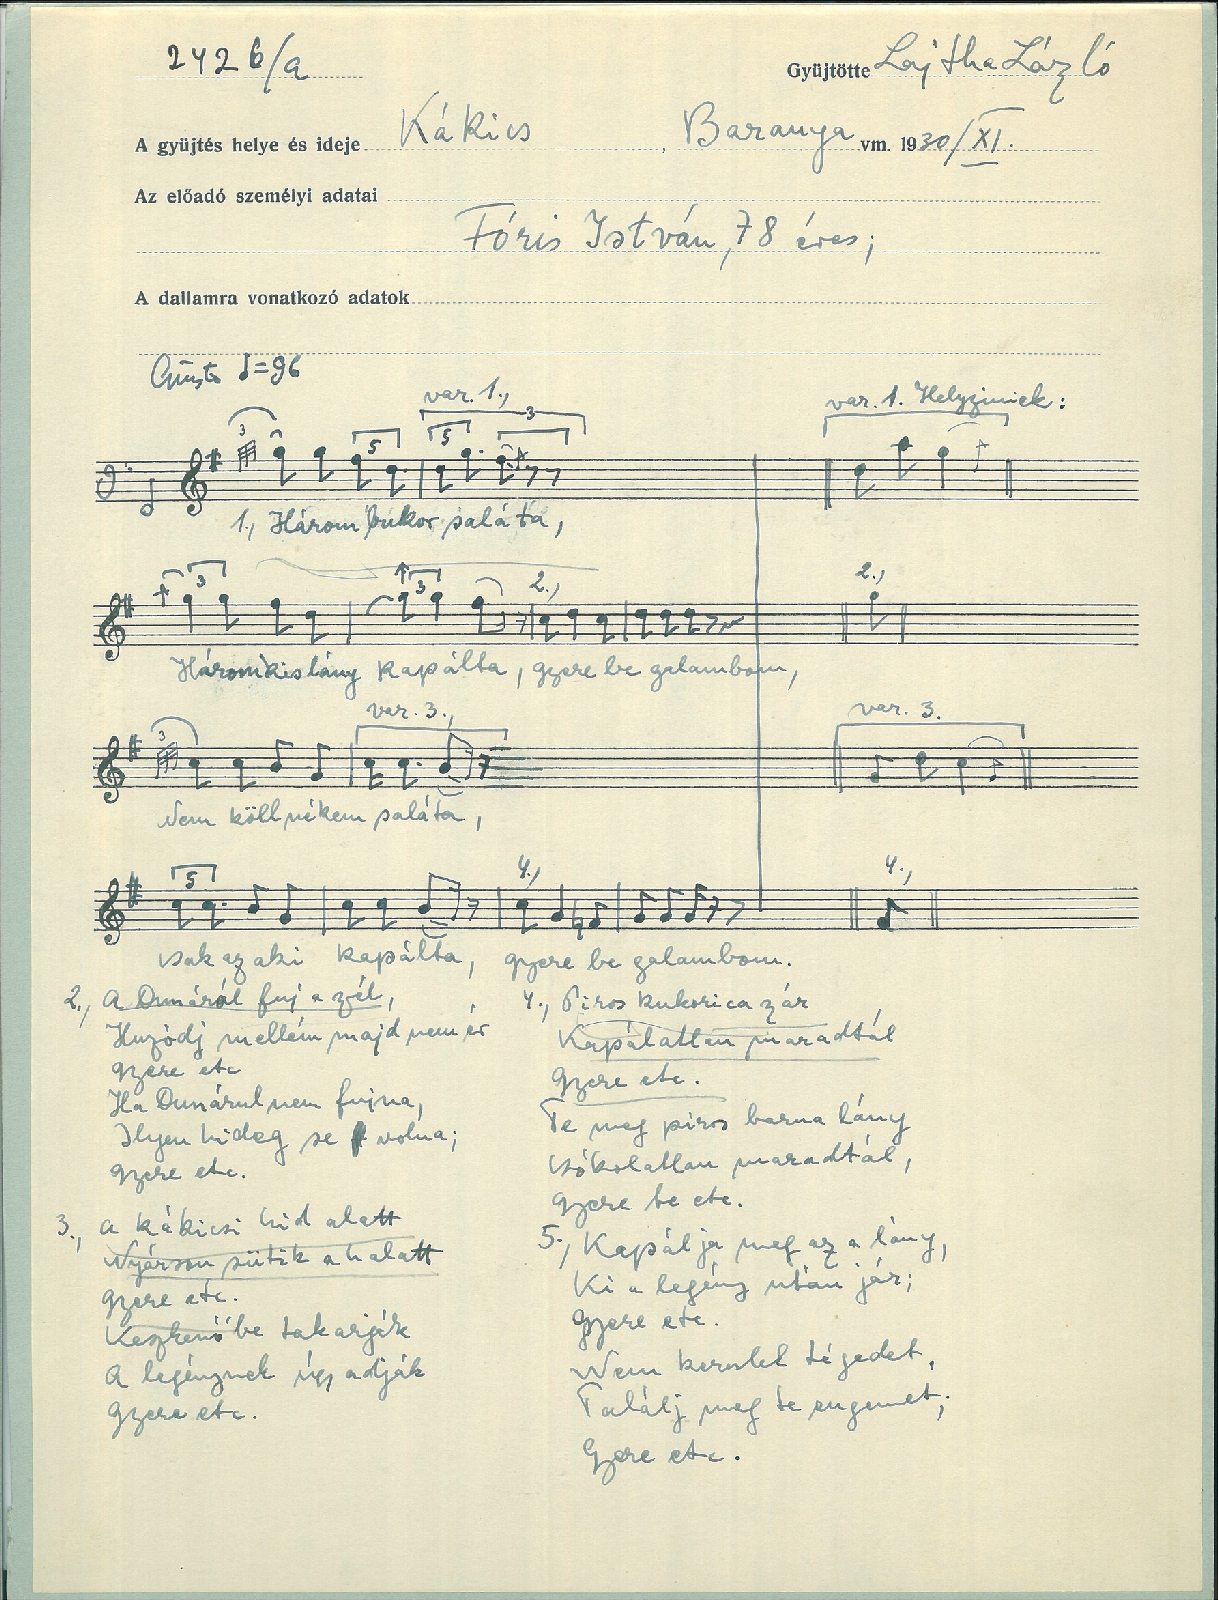 242 b/a
Gyüjtötte Lajtha László
A gyüjtés helye és ideje Kákics, Baranya vm. 1930/XI.
Az előadó személyi adatai
Fóris István, 78 éves;
A dallamra vonatkozó adatok
Giusto ♩=96
var. 1.,
var. 1. Helyzinick:
3
5
5
3
1., Három bukor saláta,
3
3
2.,
2.,
Három kislány kapálta, gyere be galambom,
var. 3.,
var. 3.
3
Nem köll nékem saláta,
5
4.,
4.,
csak az aki kapálta, gyere be galambom.
2., A Dunáról fuj a szél,
Huzódj mellém majd nem ér
gyere etc
Ha Dunárul nem fujna,
Ilyen hideg se volna;
gyere etc.
3., A kákicsi hid alatt
Nyárson sütik a halatt
gyere etc.
Keszkenőbe takarják
A legénynek úgy adják
gyere etc.
4., Piros kukorica szár
Kapálatlan maradtál
gyere etc.
Te meg piros barna lány
csókolatlan maradtál,
gyere be etc.
5., Kapálja meg az a lány,
Ki a legény után jár;
gyere etc.
Nem kereslel tégedet,
Találj meg te engemet;
Gyere etc.